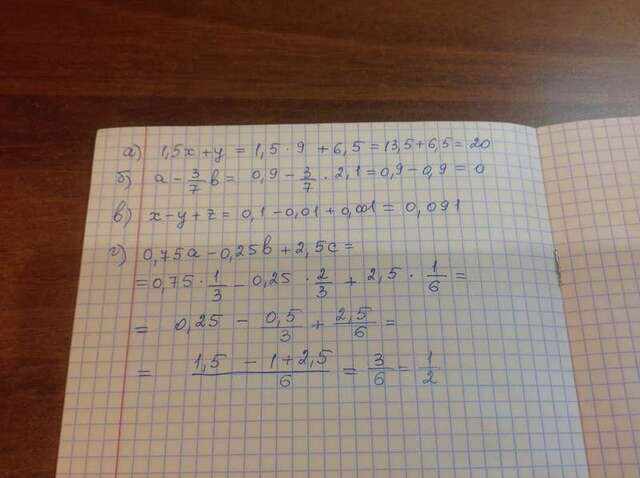 а) 1,5x+y = 1,5 · 9 + 6,5 = 13,5 + 6,5 = 20
б) a - 3/7 b = 0,9 - 3/7 · 2,1 = 0,9 - 0,9 = 0
в) x - y + z = 0,1 - 0,01 + 0,001 = 0,091
г) 0,75a - 0,25b + 2,5c =
= 0,75 · 1/3 - 0,25 · 2/3 + 2,5 · 1/6 =
= 0,25 - 0,5/3 + 2,5/6 =
= (1,5 - 1 + 2,5)/6 = 3/6 = 1/2